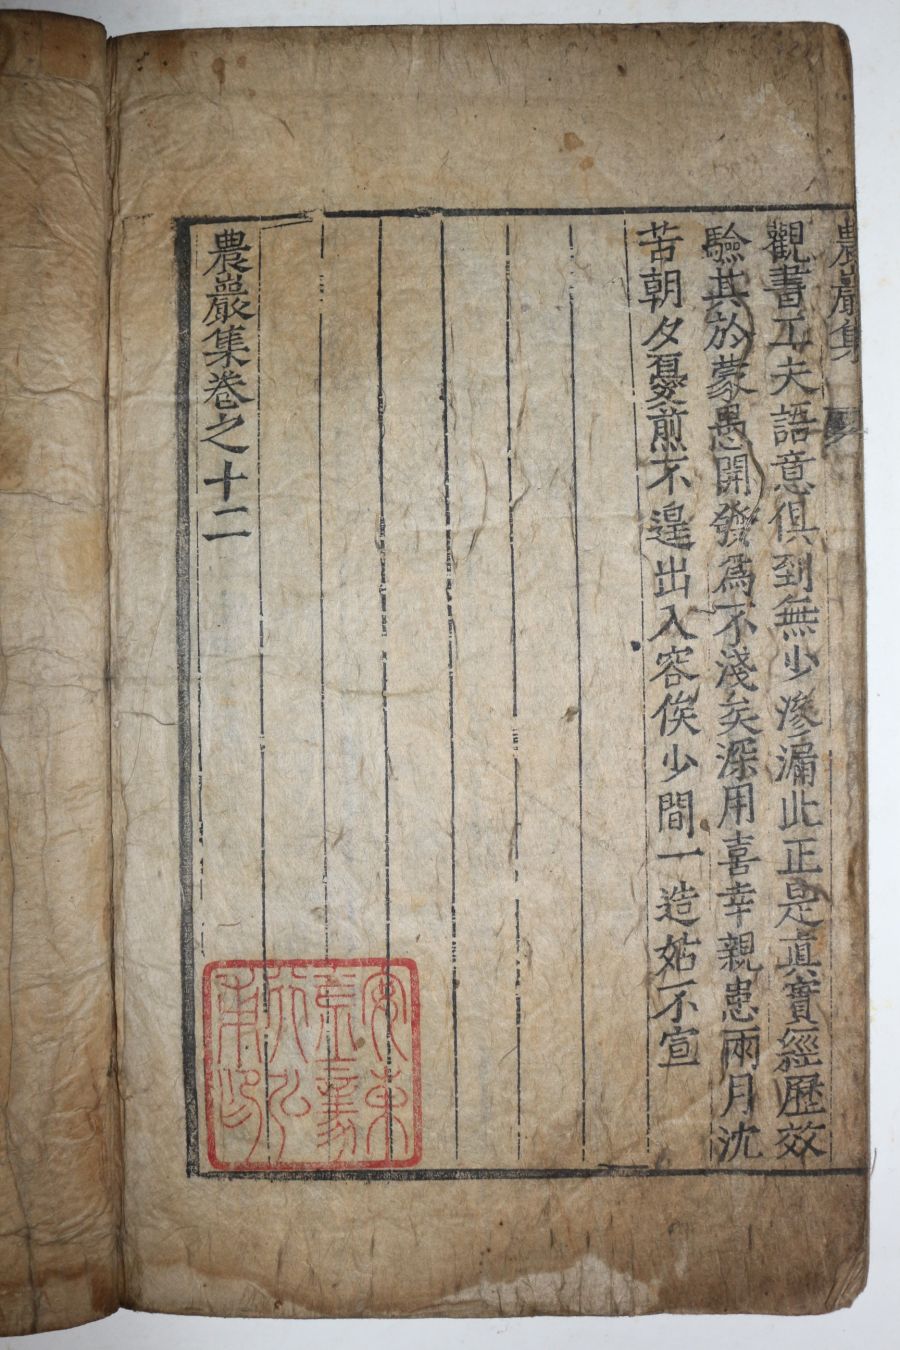 農巖集
觀書工夫語意俱到無少滲漏此正是眞實經歷效
驗其於蒙愚開發爲不淺矣深用喜幸親患兩月沈
苦朝夕憂煎不遑出入容俟少間一造姑不宣
農巖集卷之十二